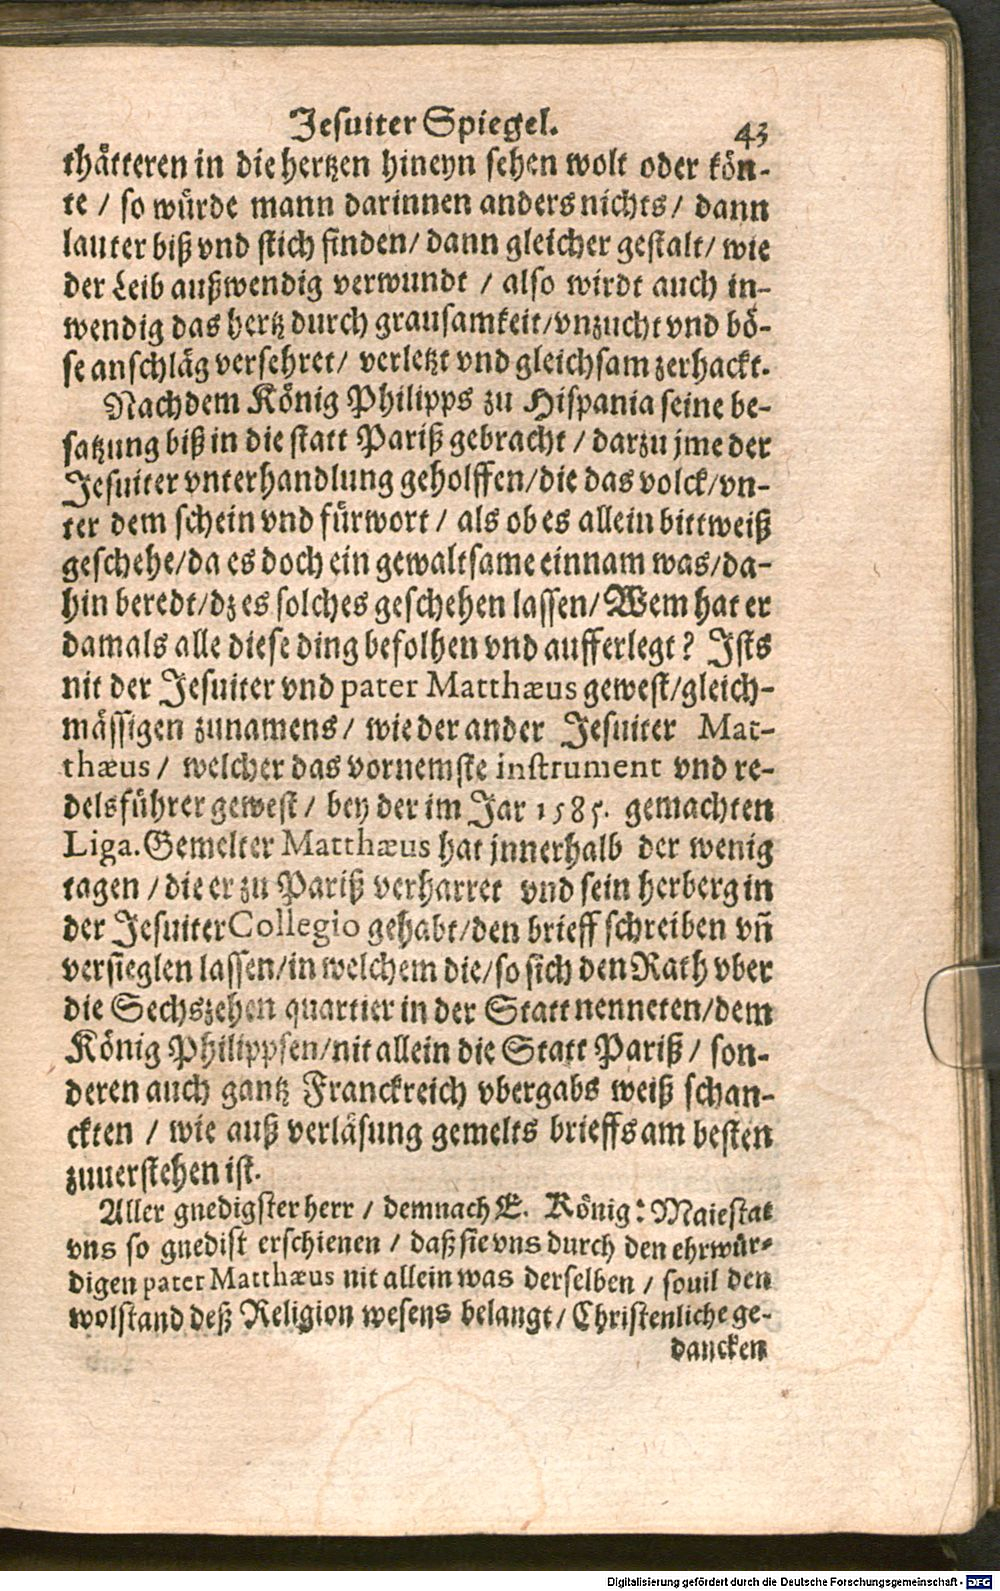 Jesuiter Spiegel. 43
thätteren in die hertzen hineyn sehen wolt oder kön-
te / so würde mann darinnen anders nichts / dann
lauter biß vnd stich finden / dann gleicher gestalt / wie
der Leib außwendig verwundt / also wirdt auch in-
wendig das hertz durch grausamkeit / vnzucht vnd bö-
se anschläg versehret / verletzt vnd gleichsam zerhackt.
Nachdem König Philipps zu Hispania seine be-
satzung biß in die statt Pariß gebracht / darzu jme der
Jesuiter vnterhandlung geholffen / die das volck / vn-
ter dem schein vnd fürwort / als ob es allein bittweiß
geschehe / da es doch ein gewaltsame einnam was / da-
hin beredt / dz es solches geschehen lassen / Wem hat er
damals alle diese ding befolhen vnd aufferlegt? Ists
nit der Jesuiter vnd pater Matthæus gewest / gleich-
mässigen zunamens / wie der ander Jesuiter Mat-
thæus / welcher das vornemste instrument vnd re-
delsführer gewest / bey der im Jar 1585. gemachten
Liga. Gemelter Matthæus hat jnnerhalb der wenig
tagen / die er zu Pariß verharret vnd sein herberg in
der Jesuiter Collegio gehabt / den brieff schreiben vñ
versieglen lassen / in welchem die / so sich den Rath vber
die Sechszehen quartier in der Statt nenneten / dem
König Philippsen / nit allein die Statt Pariß / son-
deren auch gantz Franckreich vbergabs weiß schan-
ckten / wie auß verläsung gemelts brieffs am besten
zuuerstehen ist.
Aller gnedigster herr / demnach E. König: Maiestat
vns so gnedist erschienen / daß sie vns durch den ehrwür-
digen pater Matthæus nit allein was derselben / souil den
wolstand deß Religion wesens belangt / Christenliche ge-
dancken
Digitalisierung gefördert durch die Deutsche Forschungsgemeinschaft - DFG